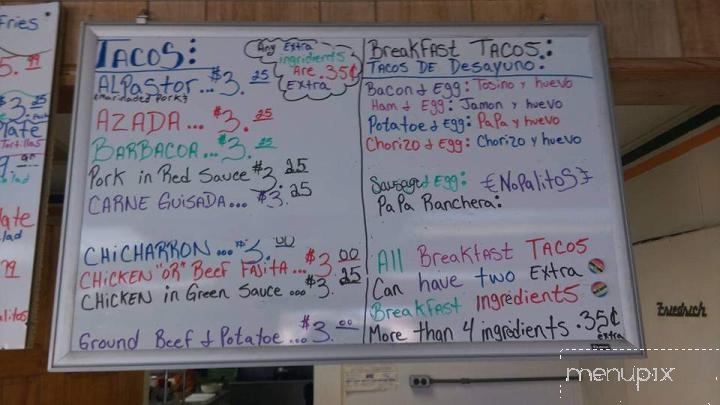 Fries
5.99
$3.25
Plate
Tortillas
alad
late
lad
99
alitos
TACOS:
Any Extra
ingredients
Are .35¢
Extra
ALPASTOR...$3.25
(marinaded Pork)
AZADA...$3.25
BARBACOA...$3.25
Pork in Red Sauce $3.25
CARNE GUISADA...$3.25
CHICHARRON...$3.00
CHICKEN "OR" Beef FAJITA...$3.00
CHICKEN in Green Sauce...$3.25
Ground Beef & Potatoe...$3.00
BreakFast TACOS:
TACOS DE Desayuno:
Bacon & Egg: Tosino y huevo
Ham & Egg: Jamon y huevo
Potatoe & Egg: PaPa y Huevo
Chorizo & Egg: Chorizo y huevo
Sausage & Egg: {NoPalitos}
PaPa Ranchera:
All Breakfast TACOS
Can have two Extra
Breakfast ingredients
More than 4 ingredients .35¢
extra
Friedrich
menupix